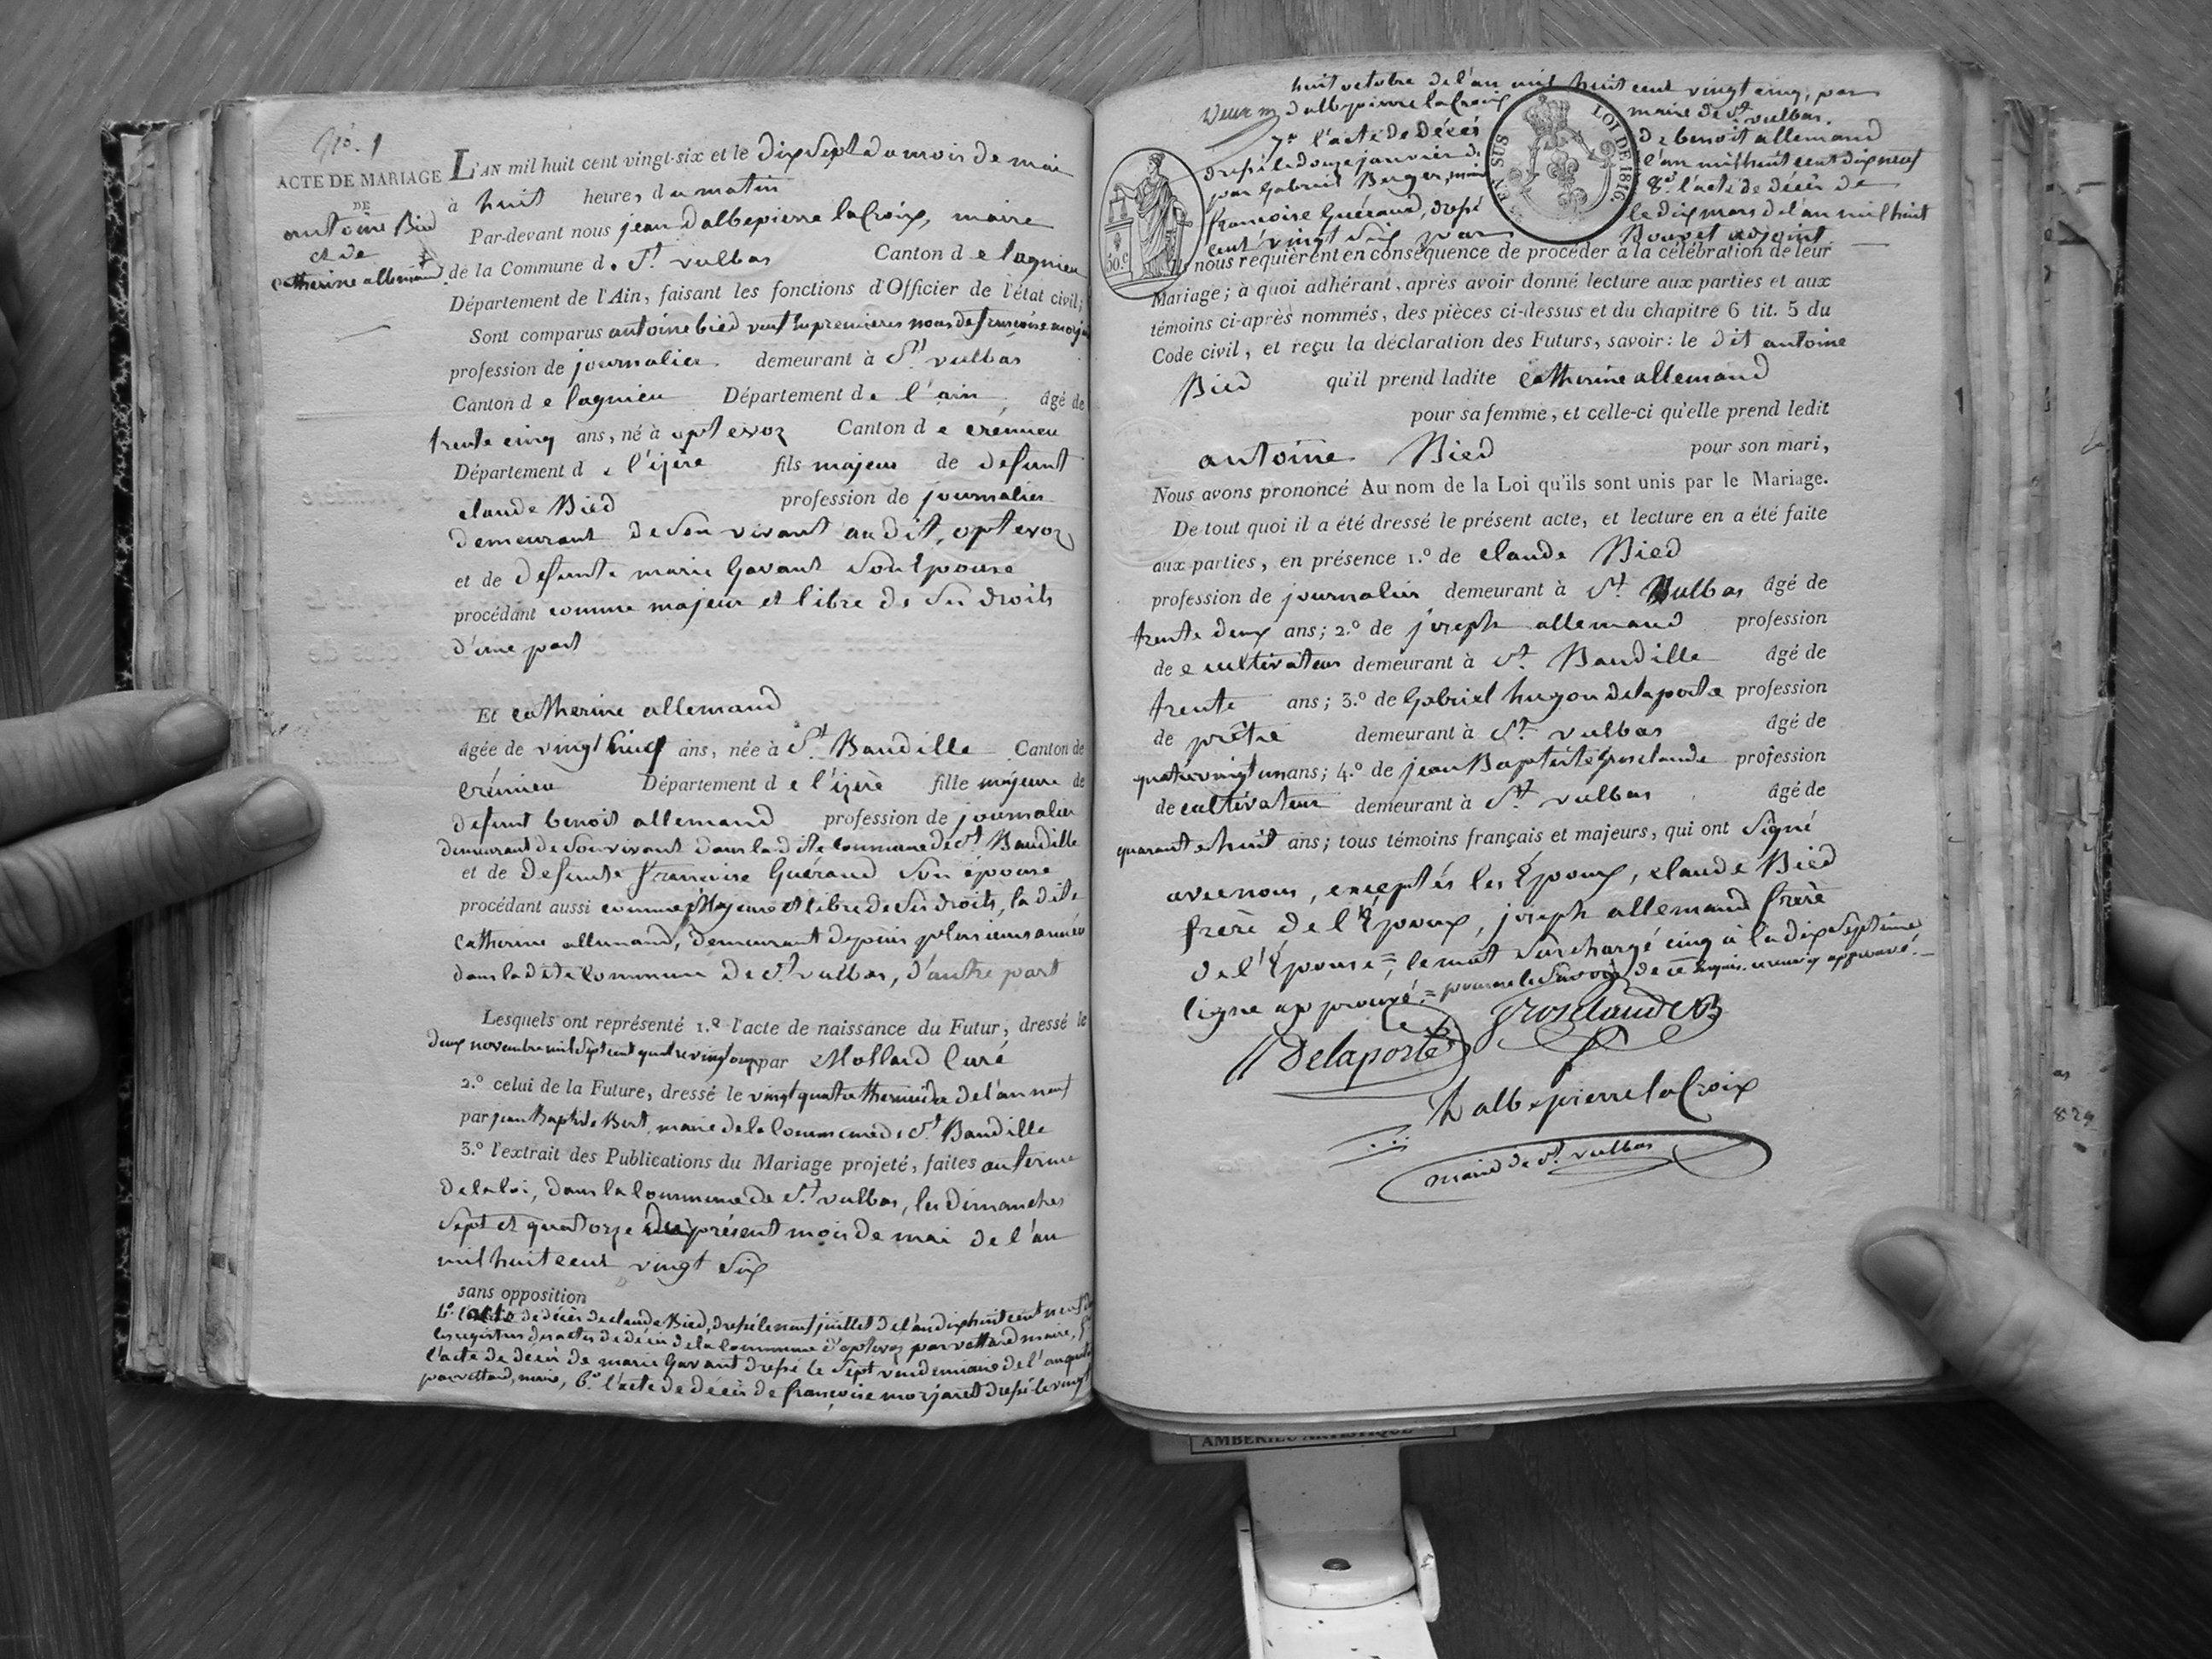 N°. 1
ACTE DE MARIAGE
DE
antoine Bied
et de
Catherine allemand.
L'AN mil huit cent vingt-six et le dix sept du mois de mai
à huit heures du matin
Par-devant nous jean dalbepierre laCroix, maire
de la Commune de St. vulbas Canton de lagnieu
Département de l'Ain, faisant les fonctions d'Officier de l'état civil;
Sont comparus antoine bied veuf en premieres noces de francoise
profession de journalier demeurant à St. vulbas
Canton de lagnieu Département de l'ain, âgé de
trente cinq ans, né à optevoz Canton de crémieu
Département de l'izère fils majeur de defunt
claude Bied profession de journalier
demeurant de son vivant audit, optevoz
et de defunte marie Gavant son Epouse
procédant comme majeur et libre de ses droits
d'une part
Et catherine allemand
âgée de vingt cinq ans, née à St. Baudille Canton de
Crémieu Département de l'izère fille majeure de
defunt benoit allemand profession de journalier
demeurant de son vivant dans la dite commune de St. Baudille
et de defunte francoise Guéraud son épouse
procédant aussi comme Majeure et libre de ses droits, la dite
Catherine allemand, demeurant depuis plusieurs années
dans la dite commune de St. vulbas, d'autre part
Lesquels ont représenté 1.º l'acte de naissance du Futur, dressé le
deux novembre mil sept cent quatre vingt onze par Mollard Curé
2.º celui de la Future, dressé le vingt quatre thermidor de l'an neuf
par jean Baptiste Bert, maire de la commune de St. Baudille
3.º l'extrait des Publications du Mariage projeté, faites au terme
de la loi, dans la commune de St. vulbas, les dimanches
sept et quatorze du présent mois de mai de l'an
mil huit cent vingt six
sans opposition
4º. l'acte de décès de claude Bied, dressé le neuf juillet de l'an dix huit cent neuf
les registres des actes de décès de la commune d'optevoz par vettard maire, 5º
l'acte de décès de marie Gavant dressé le sept vendemiaire de l'an
par vettard, maire, 6º. l'acte de décès de françoise morjaret dressé le vingt
huit octobre de l'an mil huit cent vingt cinq, par
dalbepierre laCroix maire de St. vulbas.
7º. l'acte de décès de benoit allemand
dressé le douze janvier de l'an mil huit cent dix neuf
par Gabriel Berger, maire 8º. l'acte de décès de
francoise Guéraud, dressé le dix mars de l'an mil huit
cent vingt six par Bouvet adjoint
EN SUS
LOI DE 1816.
50.c
Ils nous requièrent en conséquence de procéder à la célébration de leur
Mariage; à quoi adhérant, après avoir donné lecture aux parties et aux
témoins ci-après nommés, des pièces ci-dessus et du chapitre 6 tit. 5 du
Code civil, et reçu la déclaration des Futurs, savoir: le dit antoine
Bied qu'il prend ladite catherine allemand
pour sa femme, et celle-ci qu'elle prend ledit
antoine Bied pour son mari,
Nous avons prononcé Au nom de la Loi qu'ils sont unis par le Mariage.
De tout quoi il a été dressé le présent acte, et lecture en a été faite
aux parties, en présence 1.º de claude Bied
profession de journalier demeurant à St. Vulbas âgé de
trente deux ans; 2.º de joseph allemand profession
de cultivateur demeurant à St. Baudille âgé de
trente ans; 3.º de Gabriel hugon delaporte profession
de prêtre demeurant à St. vulbas âgé de
quatrevingt un ans; 4.º de jean Baptiste Grosclaude profession
de cultivateur demeurant à St. vulbas âgé de
quarante huit ans; tous témoins français et majeurs, qui ont signé
avec nous, exceptés les Epoux, claude Bied
frère de l'Epoux, joseph allemand frère
de l'Epouse =, le mot surchargé cinq à la dix septième
ligne approuvé. = pour ne le savoir de ce requis. approuvé.
Delaporte
Grosclaude JB
Dalbepierre laCroix
maire de St. vulbas
AMBERIEU ARTISTIQUE
829